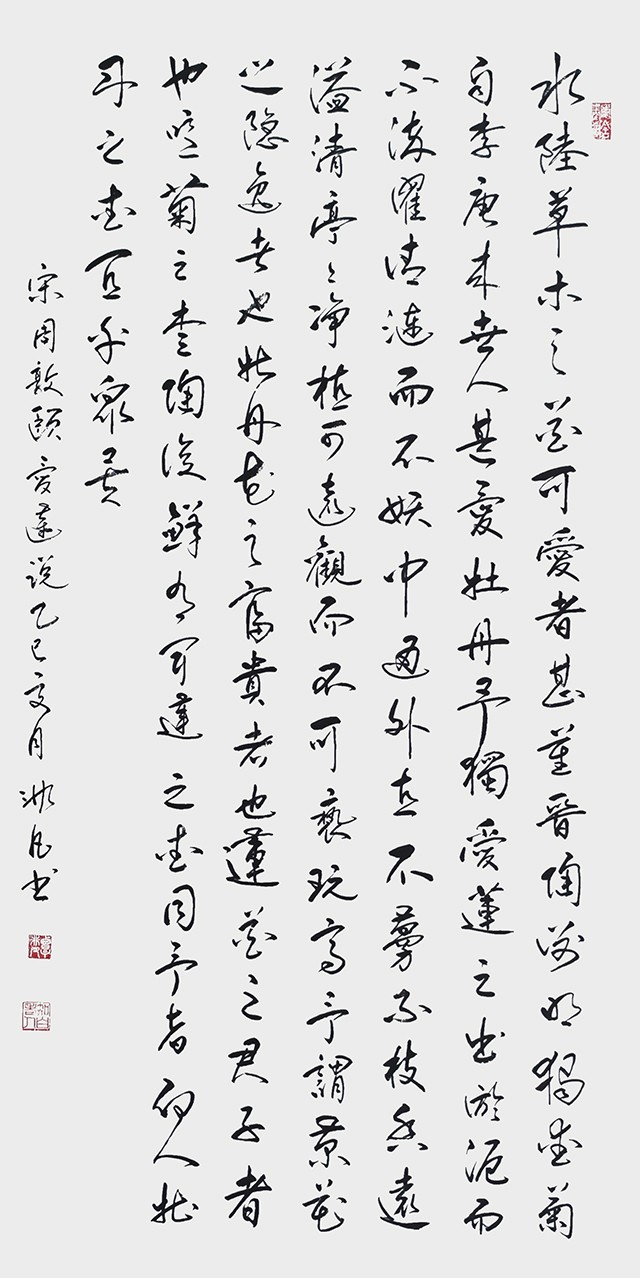 水陸草木之花可愛者甚蕃晉陶渊明獨愛菊
自李唐来世人甚愛牡丹予獨愛蓮之出淤泥而
不染濯清漣而不妖中通外直不蔓不枝香遠
溢清亭〻净植可遠觀而不可褻玩焉予謂菊花
之隐逸者也牡丹花之富貴者也蓮花之君子者
也噫菊之愛陶後鮮有闻蓮之愛同予者何人牡
丹之愛宜乎衆矣
宋周敦頤愛蓮说乙巳夏月书